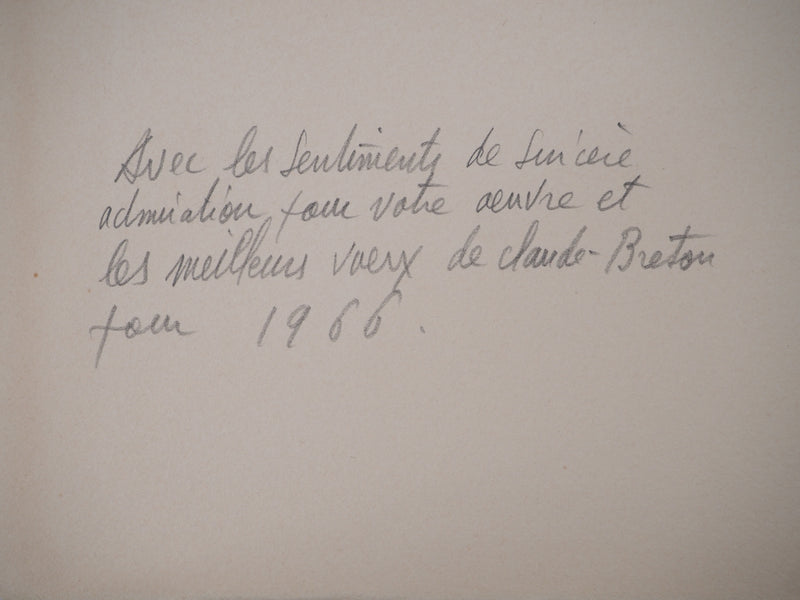 Avec les sentiments de sincère
admiration pour votre oeuvre et
les meilleurs voeux de claude-Breton
pour 1966.